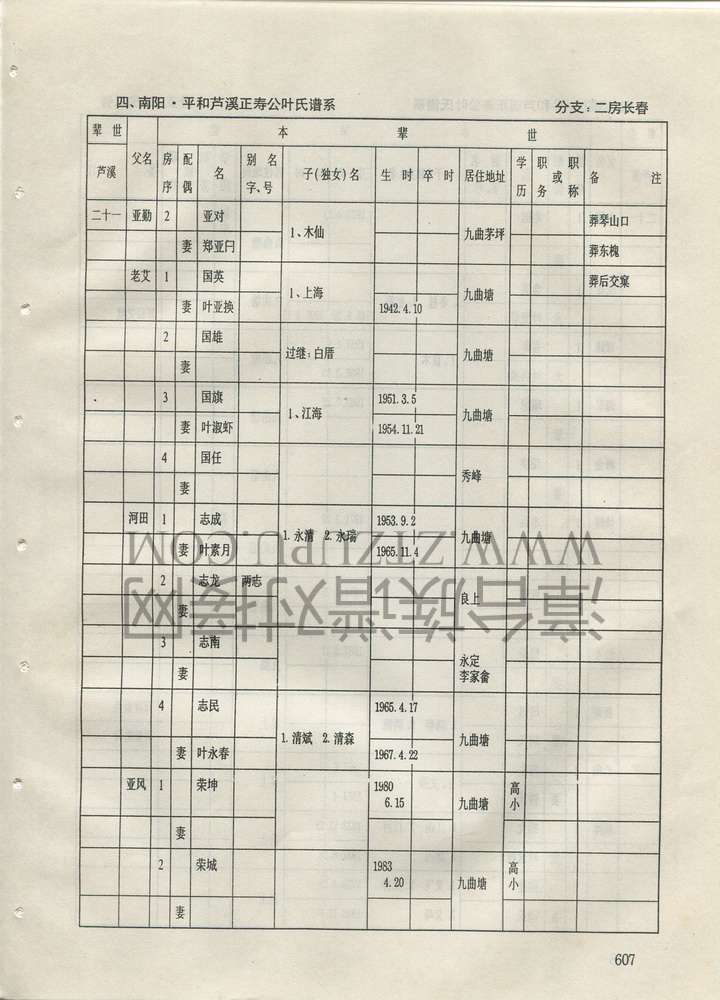 四、南阳·平和芦溪正寿公叶氏谱系 分支：二房长春
辈世 本辈世
芦溪 父名 房序 配偶 名 别名字、号 子(独女)名 生时 卒时 居住地址 学历 职务或职称 备注
二十一 亚勤 2 亚对 1、木仙 九曲茅坪 葬琴山口
妻 郑亚闩 葬东槐
老艾 1 国英 1、上海 九曲塘 葬后交窠
妻 叶亚换 1942.4.10
2 国雄 过继：白厝 九曲塘
妻
3 国旗 1、江海 1951.3.5 九曲塘
妻 叶淑虾 1954.11.21
4 国任 秀峰
妻
河田 1 志成 1.永清 2.永瑞 1953.9.2 九曲塘
妻 叶素月 1965.11.4
2 志龙 两志 良上
妻
3 志南 永定李家畲
妻
4 志民 1.清斌 2.清森 1965.4.17 九曲塘
妻 叶永春 1967.4.22
亚风 1 荣坤 1980 6.15 九曲塘 高小
妻
2 荣城 1983 4.20 九曲塘 高小
妻
607
漳台族谱对接网
WWW.ZTZUPU.COM